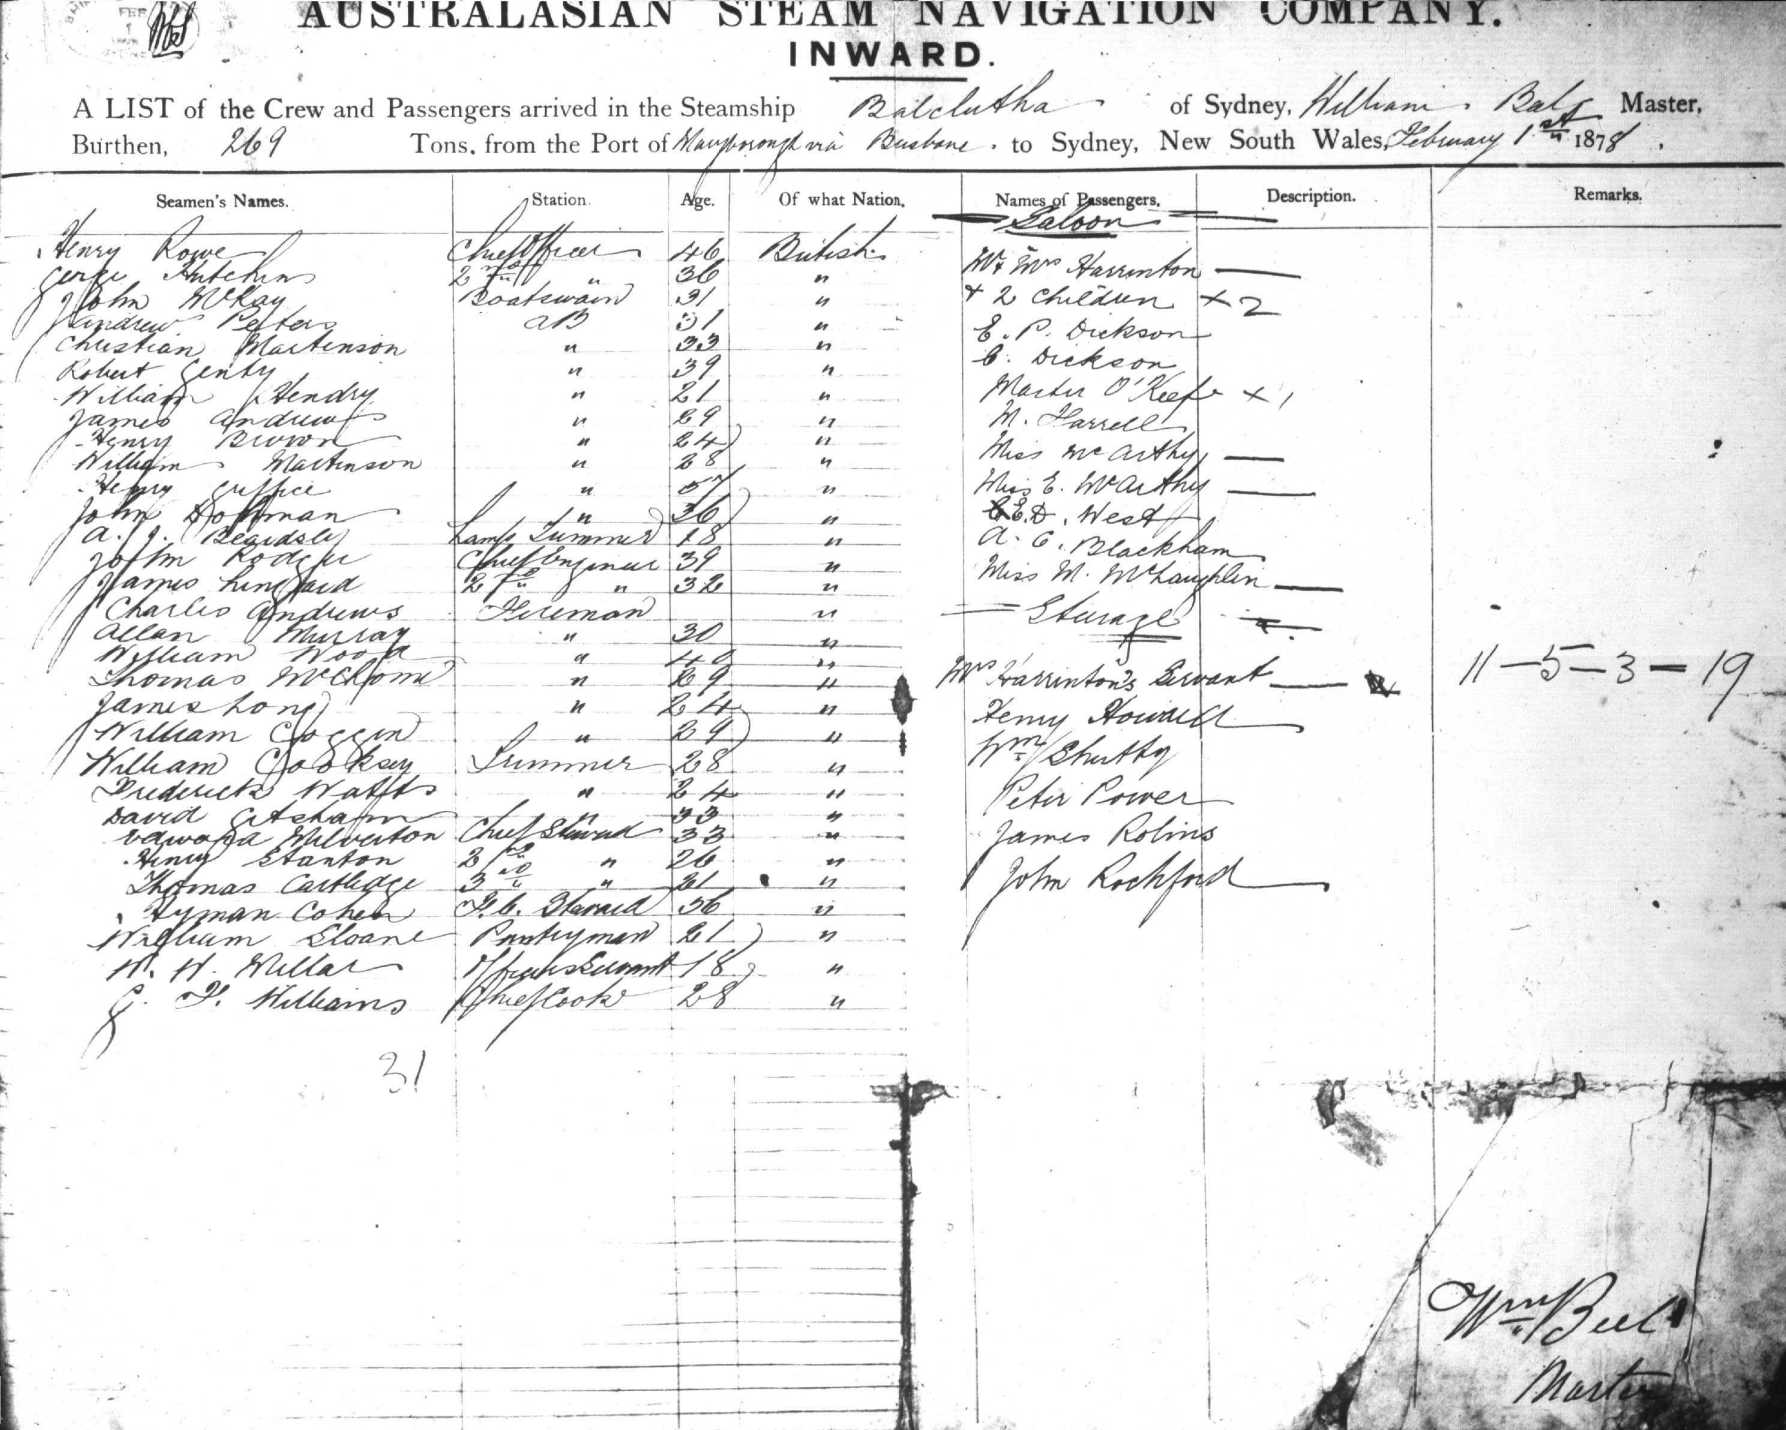 AUSTRALASIAN STEAM NAVIGATION COMPANY.
INWARD.
A LIST of the Crew and Passengers arrived in the Steamship Balclutha of Sydney, William Master,
Burthen, 269 Tons, from the Port of Maryborough via Brisbane. to Sydney, New South Wales, February 1st 1878.
Seamen's Names. Station. Age. Of what Nation. Names of Passengers. Description. Remarks.
Saloon
Henry Rowe Chief Officer 46 British
Hutchins 2nd " 36 "
John McKay Boatswain 31 "
Andrew Peters AB 31 "
Christian Martinson " 33 "
Robert Genty " 39 "
William Hendry " 21 "
James Andrews " 29 "
Henry Brown " 24 "
William Martinson " 28 "
Henry "  "
John Hoffman " 36 "
A. J. Beardsley Lamp Trimmer 18 "
John Rodger Chief Engineer 39 "
James Lingard 2nd " 32 "
Charles Andrews Fireman "
Allan Murray " 30 "
William Wood " 40 "
Thomas " 29 "
James Long " 24 "
William Coggin " 29 "
William Cooksey Trimmer 28 "
Frederick Watts " 24 "
David " 33 "
Edward Milverton Chief Steward 33 "
Henry Stanton 2nd " 26 "
Thomas Cartledge 3rd " 21 "
Hyman Cohen F.C. Steward 36 "
William Sloane Pantryman 21 "
W. W. Millar Officers Servant 18 "
G. F. Williams Chief Cook 28 "
31
Mr & Mrs Harrinton
+ 2 Children + 2
E. P. Dickson
C. Dickson
Master O'Keefe + 1
M. Farrell
Miss McArthy
Miss E. McArthy
E.D. West
A. C. Blackham
Miss M. McLaughlin
Steerage
Mrs Harrinton's Servant
Henry Howard
Wm Shutty
Peter Power
James Robins
John Rochford
11 - 5 - 3 - 19
Wm Beel
Master